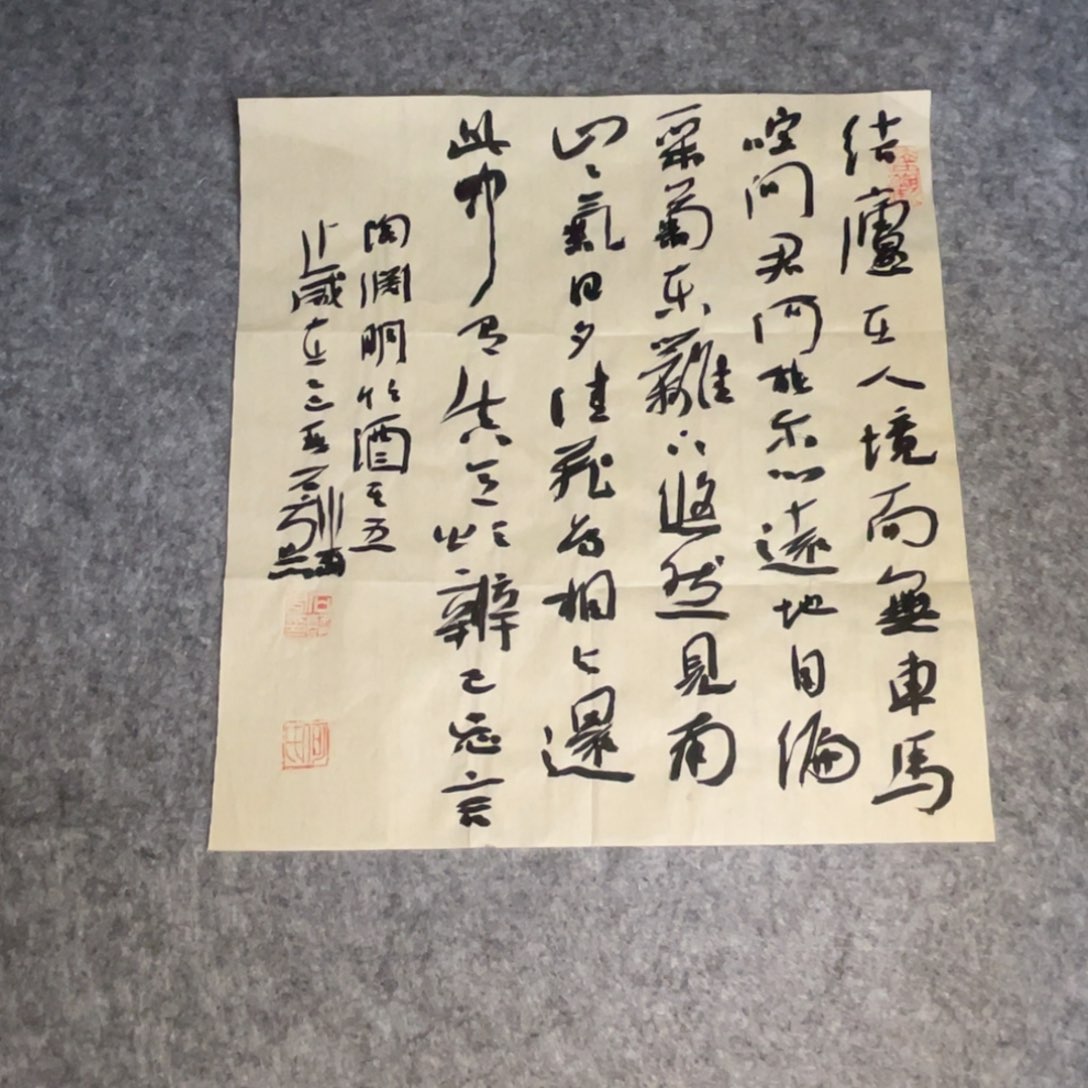 结廬在人境而無車馬
喧问君何能尔心遠地自偏
采菊东籬下悠然見南
山〻氣日夕佳飛鸟相与還
此中有真意欲辨已忘言
陶渊明饮酒其五
歲在